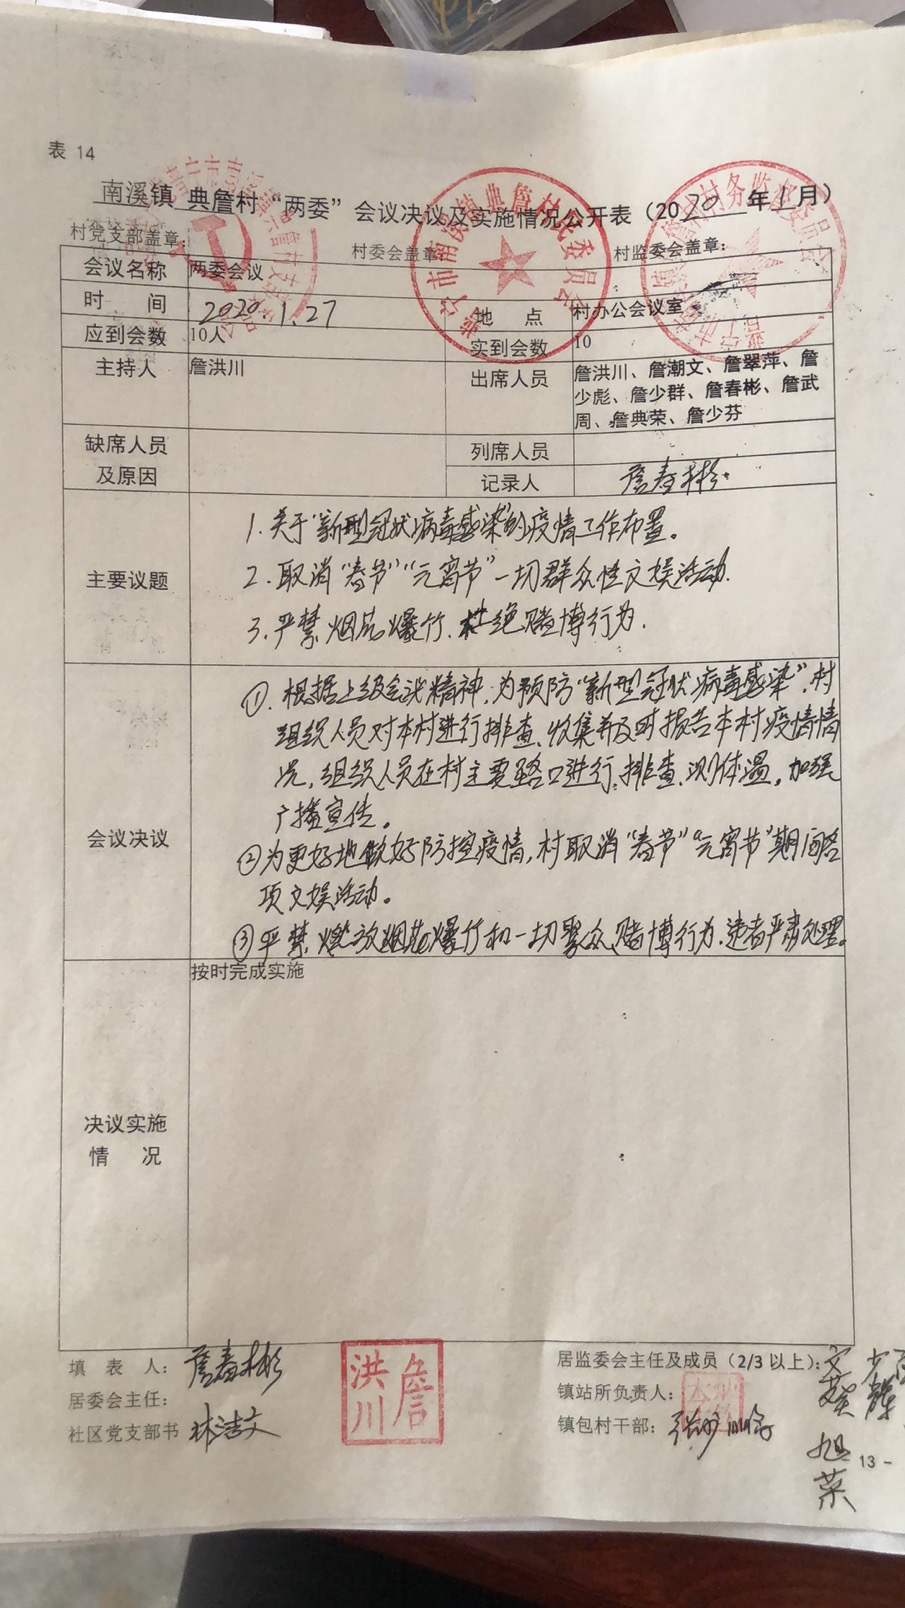 表 14
南溪镇 典詹村“两委”会议决议及实施情况公开表（2020年1月）
村党支部盖章： 村委会盖章： 村监委会盖章：
会议名称 两委会议
时 间 2020.1.27 地 点 村办公会议室
应到会数 10人 实到会数 10
主持人 詹洪川 出席人员 詹洪川、詹潮文、詹翠萍、詹
少彪、詹少群、詹春彬、詹武
周、詹典荣、詹少芬
缺席人员
及原因
列席人员
记录人 詹春彬
主要议题
1.关于“新型冠状病毒感染”的疫情工作布置。
2.取消“春节”“元宵节”一切群众性文娱活动.
3.严禁烟花爆竹、杜绝赌博行为.
会议决议
①.根据上级会议精神,为预防“新型冠状病毒感染”,村
组织人员对本村进行排查、收集并及时报告本村疫情情
况,组织人员在村主要路口进行,排查、测体温,加强
广播宣传。
②为更好地做好防控疫情,村取消“春节”“元宵节”期间各
项文娱活动。
③严禁燃放烟花爆竹和一切聚众赌博行为,违者严肃处理。
决议实施
情 况
按时完成实施
填 表 人： 詹春彬
居委会主任：
社区党支部书 林洁文
詹洪川
居监委会主任及成员（2/3 以上）：
镇站所负责人：
镇包村干部：
旭
荣
13 -